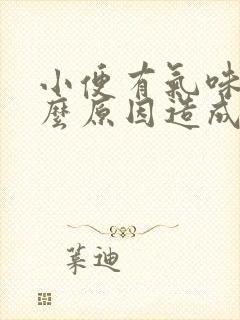 小便有氣味
麼原因造成
葉迪